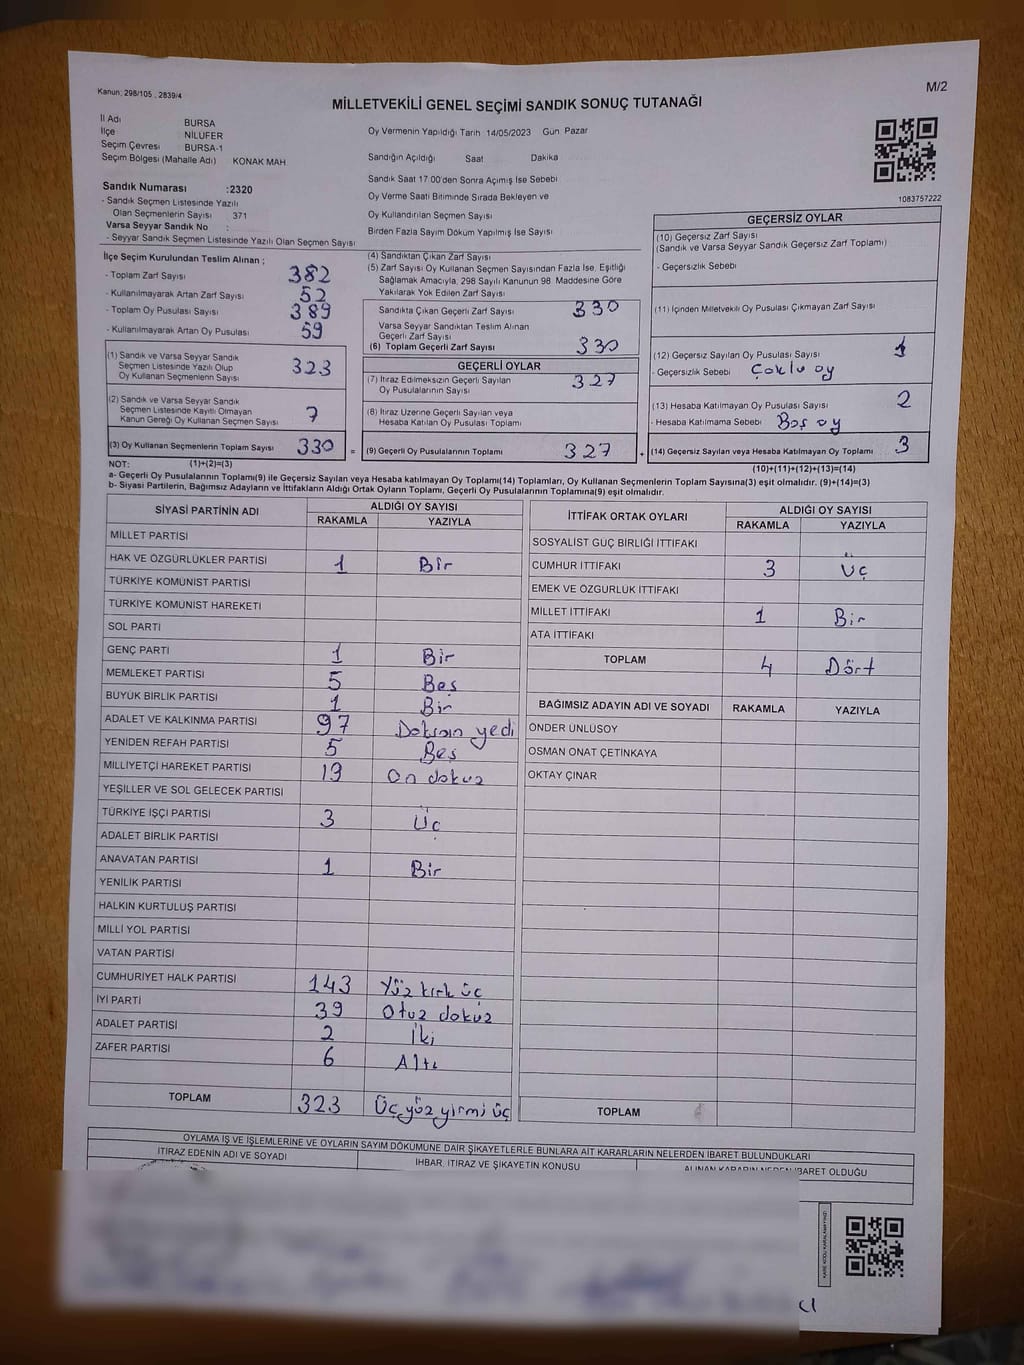 Kanun: 298/105 , 2839/4
M/2
MİLLETVEKİLİ GENEL SEÇİMİ SANDIK SONUÇ TUTANAĞI
İl Adı BURSA
İlçe NİLÜFER
Seçim Çevresi BURSA-1
Seçim Bölgesi (Mahalle Adı) KONAK MAH.
Oy Vermenin Yapıldığı Tarih 14/05/2023 Gün Pazar
Sandığın Açıldığı Saat Dakika
Sandık Saat 17:00'den Sonra Açımış İse Sebebi
Oy Verme Saati Bitiminde Sırada Bekleyen ve
Oy Kullandırılan Seçmen Sayısı
Birden Fazla Sayım Döküm Yapılmış İse Sayısı
1083757222
Sandık Numarası :2320
- Sandık Seçmen Listesinde Yazılı
Olan Seçmenlerin Sayısı : 371
Varsa Seyyar Sandık No :
- Seyyar Sandık Seçmen Listesinde Yazılı Olan Seçmen Sayısı
İlçe Seçim Kurulundan Teslim Alınan ;
- Toplam Zarf Sayısı 382
- Kullanılmayarak Artan Zarf Sayısı 52
- Toplam Oy Pusulası Sayısı 389
- Kullanılmayarak Artan Oy Pusulası 59
(1) Sandık ve Varsa Seyyar Sandık
Seçmen Listesinde Yazılı Olup
Oy Kullanan Seçmenlerin Sayısı 323
(2) Sandık ve Varsa Seyyar Sandık
Seçmen Listesinde Kayıtlı Olmayan
Kanun Gereği Oy Kullanan Seçmen Sayısı 7
(3) Oy Kullanan Seçmenlerin Toplam Sayısı 330 =
(1)+(2)=(3)
(4) Sandıktan Çıkan Zarf Sayısı
(5) Zarf Sayısı Oy Kullanan Seçmen Sayısından Fazla İse, Eşitliği
Sağlamak Amacıyla, 298 Sayılı Kanunun 98. Maddesine Göre
Yakılarak Yok Edilen Zarf Sayısı
Sandıkta Çıkan Geçerli Zarf Sayısı 330
Varsa Seyyar Sandıktan Teslim Alınan
Geçerli Zarf Sayısı
(6) Toplam Geçerli Zarf Sayısı 330
GEÇERLİ OYLAR
(7) İtiraz Edilmeksizin Geçerli Sayılan
Oy Pusulalarının Sayısı 327
(8) İtiraz Üzerine Geçerli Sayılan veya
Hesaba Katılan Oy Pusulası Toplamı
(9) Geçerli Oy Pusulalarının Toplamı 327 +
GEÇERSİZ OYLAR
(10) Geçersiz Zarf Sayısı
(Sandık ve Varsa Seyyar Sandık Geçersiz Zarf Toplamı)
- Geçersizlik Sebebi
(11) İçinden Milletvekili Oy Pusulası Çıkmayan Zarf Sayısı
(12) Geçersiz Sayılan Oy Pusulası Sayısı 1
- Geçersizlik Sebebi Çoklu oy
(13) Hesaba Katılmayan Oy Pusulası Sayısı 2
- Hesaba Katılmama Sebebi Boş oy
(14) Geçersiz Sayılan veya Hesaba Katılmayan Oy Toplamı 3
(10)+(11)+(12)+(13)=(14)
NOT:
a- Geçerli Oy Pusulalarının Toplamı(9) ile Geçersiz Sayılan veya Hesaba katılmayan Oy Toplamı(14) Toplamları, Oy Kullanan Seçmenlerin Toplam Sayısına(3) eşit olmalıdır. (9)+(14)=(3)
b- Siyasi Partilerin, Bağımsız Adayların ve İttifakların Aldığı Ortak Oyların Toplamı, Geçerli Oy Pusulalarının Toplamına(9) eşit olmalıdır.
SİYASİ PARTİNİN ADI ALDIĞI OY SAYISI
RAKAMLA YAZIYLA
MİLLET PARTİSİ
HAK VE ÖZGÜRLÜKLER PARTİSİ 1 Bir
TÜRKİYE KOMÜNİST PARTİSİ
TÜRKİYE KOMÜNİST HAREKETİ
SOL PARTİ
GENÇ PARTİ 1 Bir
MEMLEKET PARTİSİ 5 Beş
BÜYÜK BİRLİK PARTİSİ 1 Bir
ADALET VE KALKINMA PARTİSİ 97 Doksan yedi
YENİDEN REFAH PARTİSİ 5 Beş
MİLLİYETÇİ HAREKET PARTİSİ 19 On dokuz
YEŞİLLER VE SOL GELECEK PARTİSİ
TÜRKİYE İŞÇİ PARTİSİ 3 Üç
ADALET BİRLİK PARTİSİ
ANAVATAN PARTİSİ 1 Bir
YENİLİK PARTİSİ
HALKIN KURTULUŞ PARTİSİ
MİLLİ YOL PARTİSİ
VATAN PARTİSİ
CUMHURİYET HALK PARTİSİ 143 Yüz kırk üç
İYİ PARTİ 39 Otuz dokuz
ADALET PARTİSİ 2 İki
ZAFER PARTİSİ 6 Altı
TOPLAM 323 Üç yüz yirmi üç
İTTİFAK ORTAK OYLARI ALDIĞI OY SAYISI
RAKAMLA YAZIYLA
SOSYALİST GÜÇ BİRLİĞİ İTTİFAKI
CUMHUR İTTİFAKI 3 Üç
EMEK VE ÖZGÜRLÜK İTTİFAKI
MİLLET İTTİFAKI 1 Bir
ATA İTTİFAKI
TOPLAM 4 Dört
BAĞIMSIZ ADAYIN ADI VE SOYADI RAKAMLA YAZIYLA
ÖNDER ÜNLÜSOY
OSMAN ONAT ÇETİNKAYA
OKTAY ÇINAR
TOPLAM
OYLAMA İŞ VE İŞLEMLERİNE VE OYLARIN SAYIM DÖKÜMÜNE DAİR ŞİKAYETLERLE BUNLARA AİT KARARLARIN NELERDEN İBARET BULUNDUKLARI
İTİRAZ EDENİN ADI VE SOYADI İHBAR, İTİRAZ VE ŞİKAYETİN KONUSU ALINAN KARARIN NEDEN İBARET OLDUĞU
KARE KODU KARALAMAYINIZ!